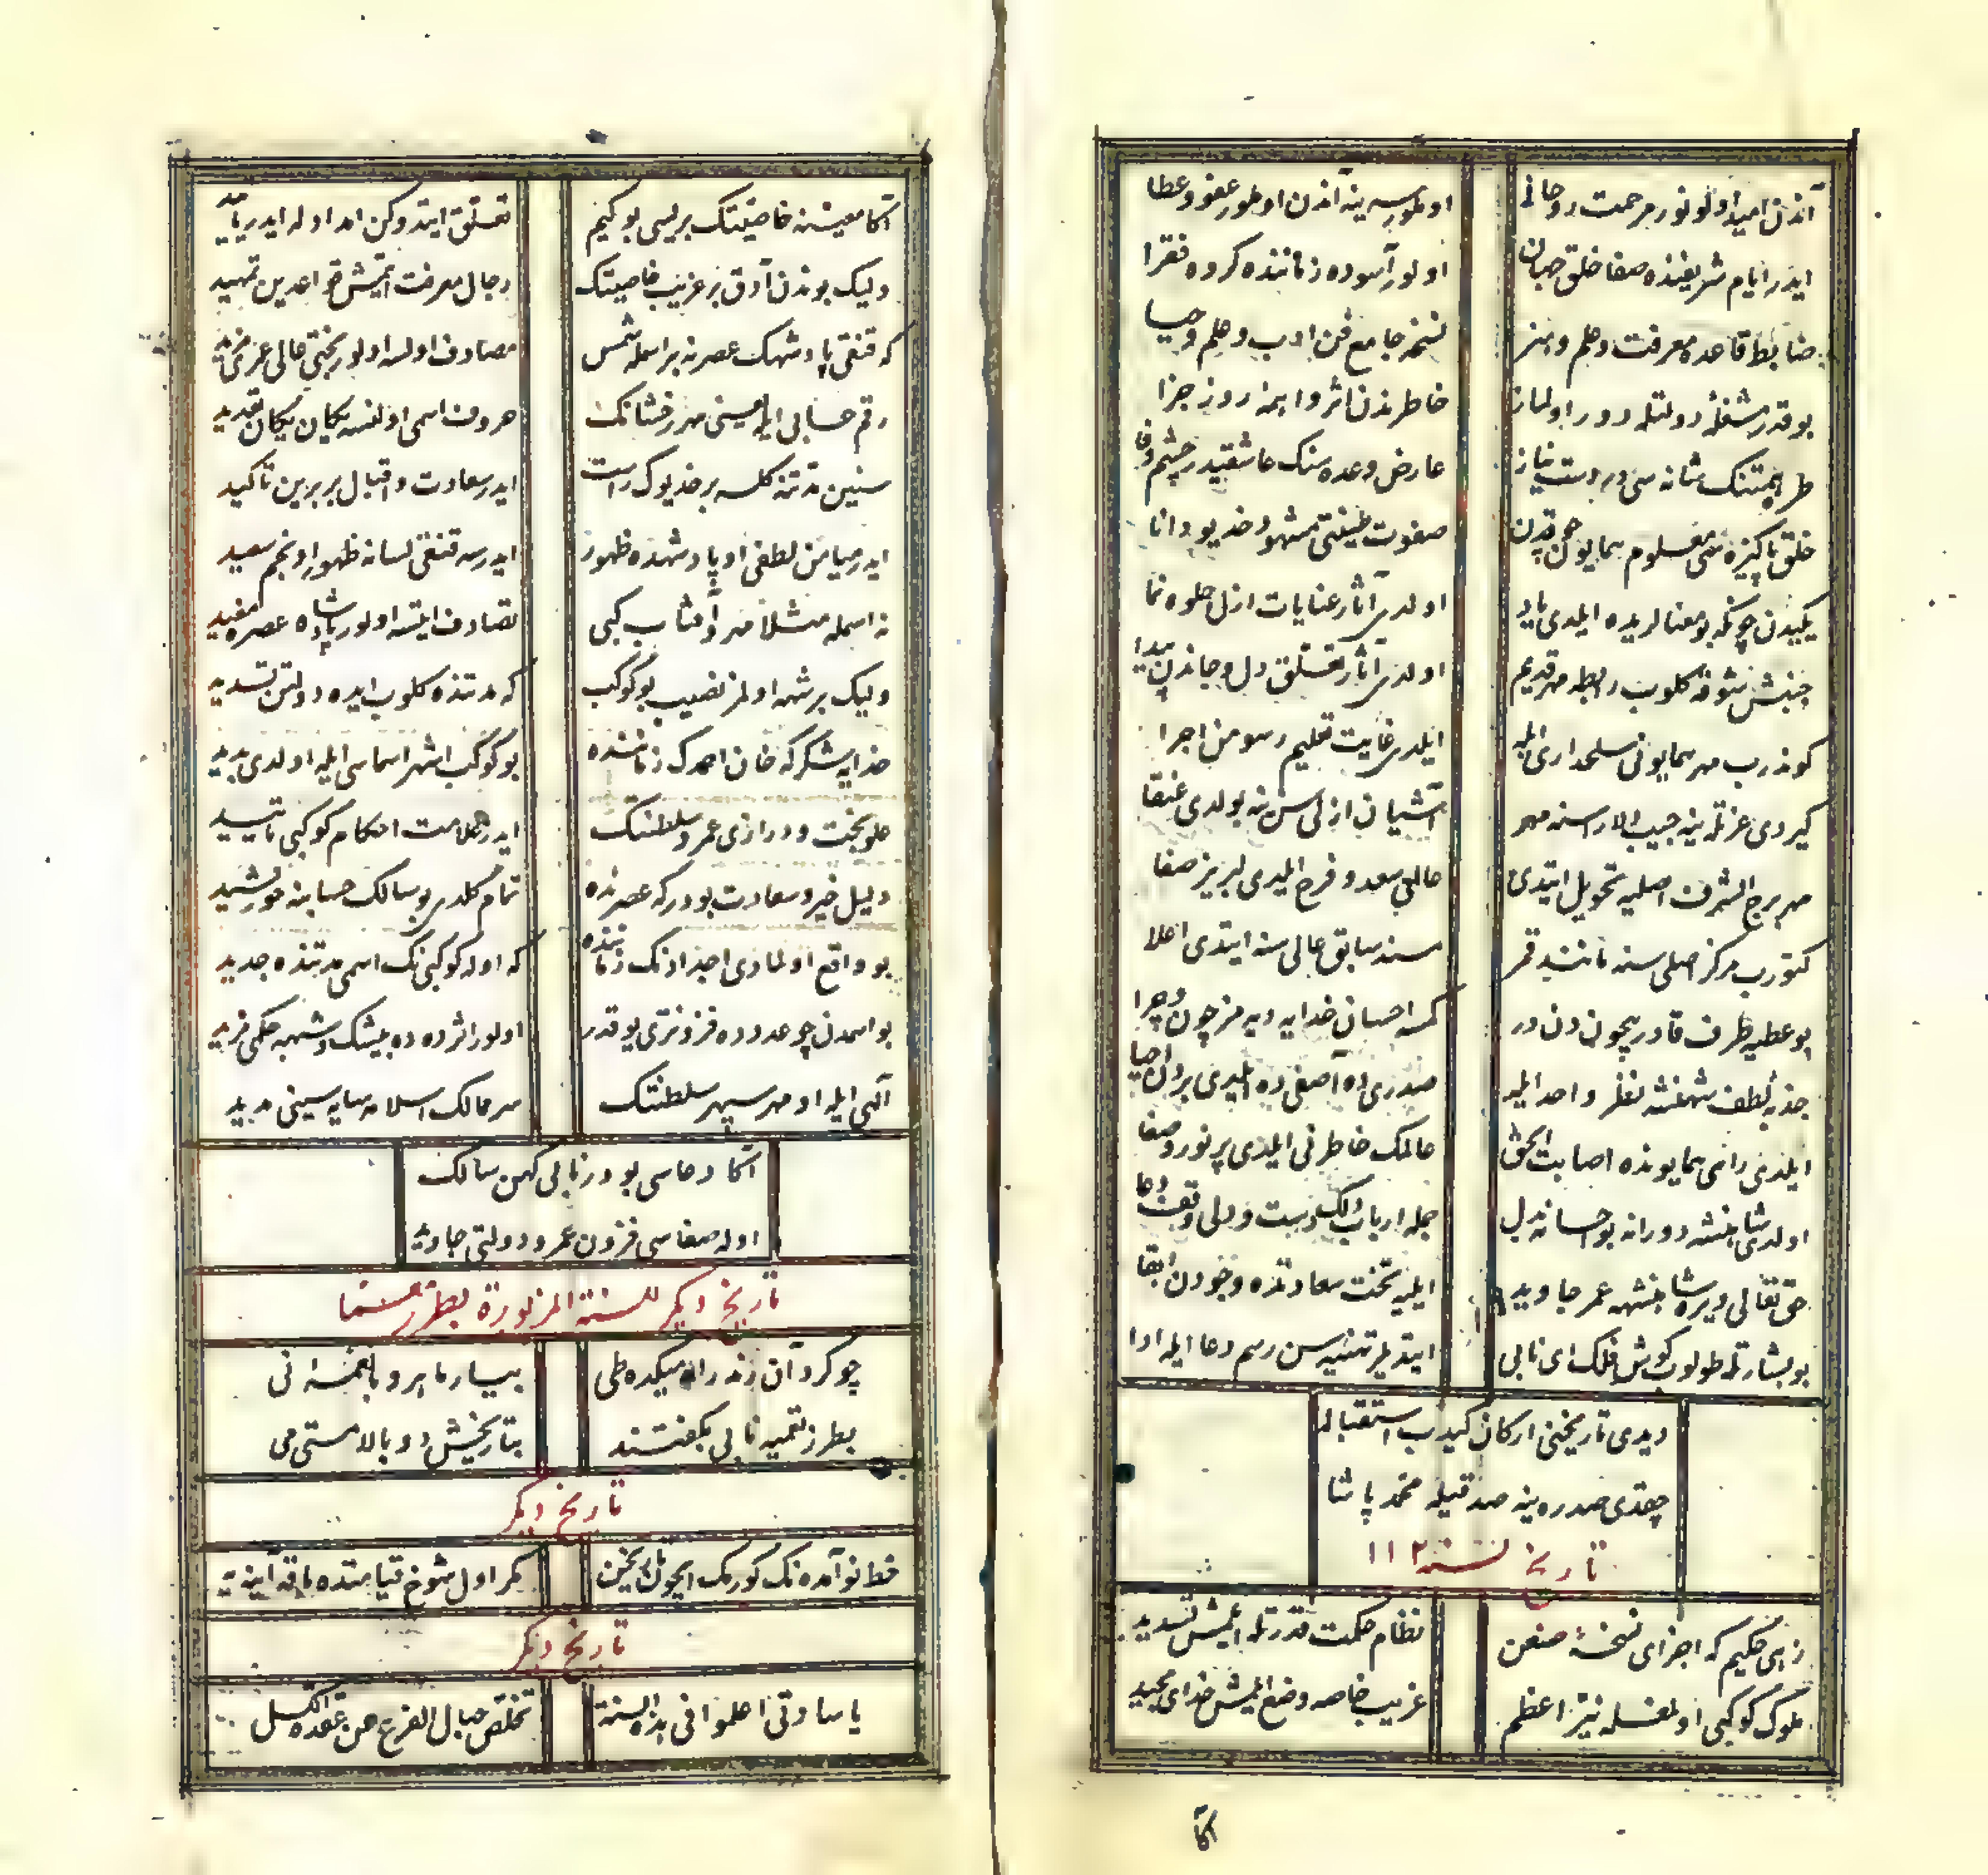 آندن امید اولونور مرحمت روحانی
اولور سرینه آندن اولور عفو و عطا
ایدر ایام شریفنده صفا خلق جهان
اولور آسوده زماننده کروه فقرا
ضابط قاعده معرفت و حلم و هنر
نسخه جامع فن ادب و حلم و حیا
بو قدر مشغله دولتله دور اولماز
خاطرندن اثر واهمه روز جزا
طره همتنک شانه سی در دست نیاز
عارض وعده سنک عاشقیدر چشم وفا
خلق پاکیزه سی معلوم همایون
صفوت طینتی مشهود خدیو دانا
یکیدن چونکه بو معنالریده ایلدی یاد
اولدی آثار عنایات ازلی جلوه نما
جنبش شوقه کلوب رابطه مهر قدیم
اولدی آثار تعلق دل و جاندن پیدا
کوندرب مهر همایونی سلحداری ایله
ایلدی غایت تعلیم رسومن اجرا
کیردی عزتله ینه جیب دلاراسنه مهر
آشیان ازلی سن ینه بولدی عنقا
مهر برج الشرف اصلیه تحویل ایتدی
عالمی سعد و فرح ایلدی لبریز صفا
کتورب مرکز اصلی سنه مانند قمر
مسند سابق عالی سنه ایتدی اعلا
بو عطیه طرف قادر بیچون دن در
کمسه احسان خدایه دیه مز چون و چرا
جذبه لطف شهنشه نظر واحد ایله
صدری ده آصفی ده ایلدی بردن احیا
ایلدی رای همایونده اصابت الحق
عالمک خاطرنی ایلدی پرنور و صفا
اولدی شاهنشه دورانه بو احسانه بدل
جمله ارباب دلک دست و دلی وقف دعا
حق تعالی ویره شاهنشهه عمر جاوید
ایلیه تخت سعادتده وجودن ابقا
بو بشارتله طولوب کوش فلک ای نابی
ایتدیلر تهنیه سن رسم دعا ایله ادا
دیدی تاریخنی ارکان کیدب استقباله
چقدی صدره ینه صدقیله محمد پاشا
تاریخ لسنه ۱۱۲
زهی حکیم که اجزای نسخهٔ صنعن
نظام حکمت قدرتله ایلمش تسدید
ملوک کوکبی اولمغله نیر اعظم
غریب خاصه وضع ایلمش خدای مجید
اکا
اکا معیننه خاصیتک بریسی بو کیم
تعلق ایتدوکن امداد اوله ایدر تأیید
ولیک بوندن آرق بر غریب خاصیتک
رجال معرفت ایتمش قواعدین تمهید
که قنغی پادشهک عصرنه بر اسمله شمس
مصادف اولسه اولور بختی عالی عمری مزید
رقم حسابی ایله اسمنی مهر رخشانک
حروف اسمی اولنسه یکان یکان تعدید
سنین مدتنه کلسه بر خدیوک راست
ایدر سعادت و اقبال بربرین تأکید
ایدر میامن لطفی او پادشهده ظهور
ایدرسه قنغی لسانه ظهور او نجم سعید
نه اسمله مثلا مهر و آفتاب کبی
تصادف ایتسه اولور پادشاه عصره مفید
ولیک بر شهه اولمز نصیب بو کوکب
که مدتنده کلوب ایده دولتن تسدید
خدایه شکر که خان احمدک زماننده
بو کوکب اشهر اسماسی ایله اولدی پدید
علو بخت و درازی عمر و سلطنتک
ایدر علامت احکام کوکبی تأیید
دلیل خیر و سعادت بودر که عصرنده
تمام کلدی بو سالک حسابنه خورشید
بو واقع اولمادی اجدادنک زماننده
که اوله کوکبی نک اسمی مدتنده جدید
بو اسمدن چو عددده فزونتری یوقدر
اولور اثرده ده بیشک و شبهه حکمی مزید
الهی ایله او مهر سپهر سلطنتک
سر ممالک اسلامه سایه سینی مدید
اکا دعاسی بودر نابی کهن سالک
اوله صفاسی فزون عمر و دولتی جاوید
تاریخ دیکر للسنة المزبورة بطرز معما
چو کرد آن رند راه میکده طی
بیسار ماهرو با نغمه نی
بطرز تعمیه نابی بکفتند
بتاریخش دو بالا مستی می
تاریخ دیکر
خط نو آمده نک کورمک ایچون تاریخن
مکر اول شوخ قیامتده باقه آینه یه
تاریخ دیکر
یا سادتی اعلموا فی هذه السنة
تخلص حبال الفرع من عقدة الکسل